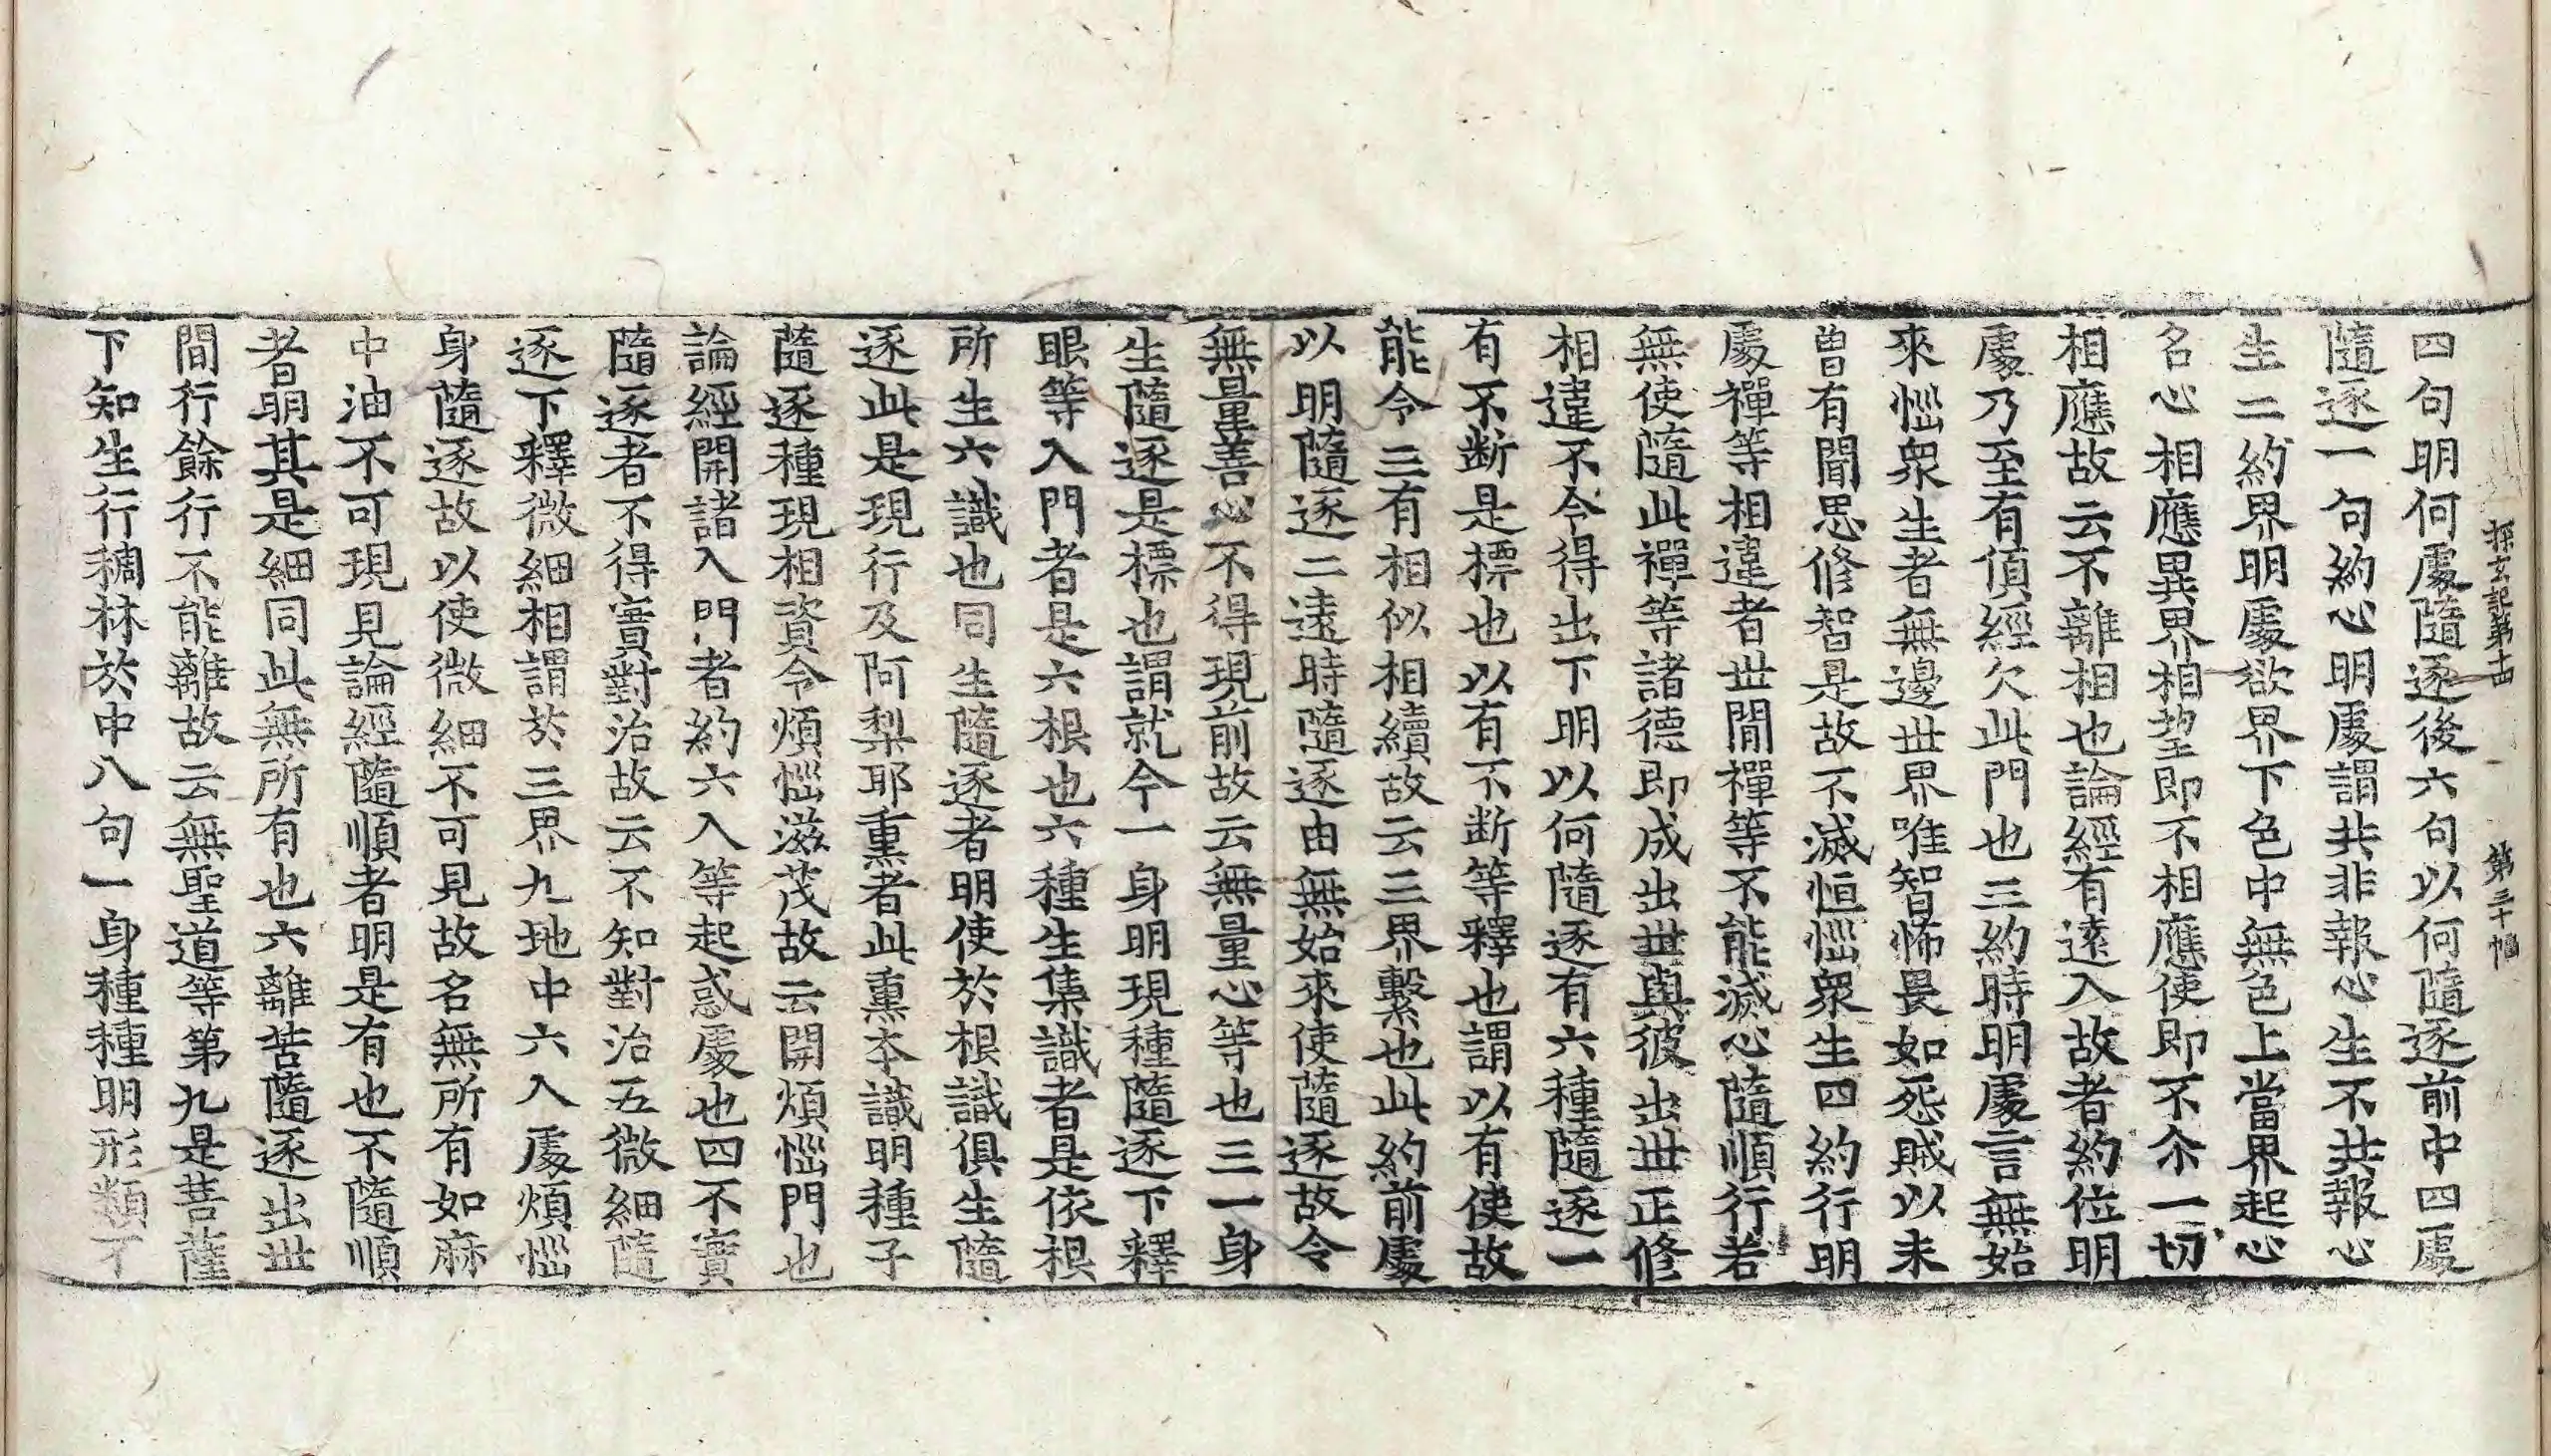 探玄記第十四　第三十幅
四句明何處隨逐後六句以何隨逐前中四處
隨逐一句約心明處謂共非報心生不共報心
生二約界明處欲界下色中無色上當界起心
名心相應異界相望即不相應使即不尒一切
相應故云不離相也論經有遠入故者約位明
處乃至有頂經欠此門也三約時明處言無始
來惱衆生者無邊世界唯智怖畏如死賊以未
曽有聞思修智是故不滅恒惱衆生四約行明
處禪等相違者世間禪等不能滅心隨順行者
無使隨此禪等諸德即成出世與彼出世正修
相違不令得出下明以何隨逐有六種隨逐一
有不断是標也以有不断等釋也謂以有使故
能令三有相似相續故云三界繫也此約前處
以明隨逐二遠時隨逐由無始來使隨逐故令
無量善心不得現前故云無量心等也三一身
生隨逐是標也謂就今一身明現種隨逐下釋
眼等入門者是六根也六種生集識者是依根
所生六識也同生隨逐者明使於根識俱生隨
逐此是現行及阿梨耶熏者此熏本識明種子
隨逐種現相資令煩惱滋茂故云開煩惱門也
論經開諸入門者約六入等起惑處也四不實
隨逐者不得實對治故云不知對治五微細隨
逐下釋微細相謂於三界九地中六入處煩惱
身隨逐故以使微細不可見故名無所有如麻
中油不可現見論經隨順者明是有也不隨順
者明其是細同此無所有也六離苦隨逐出世
間行餘行不能離故云無聖道等第九是菩薩
下知生行稠林於中八句一身種種明形類不